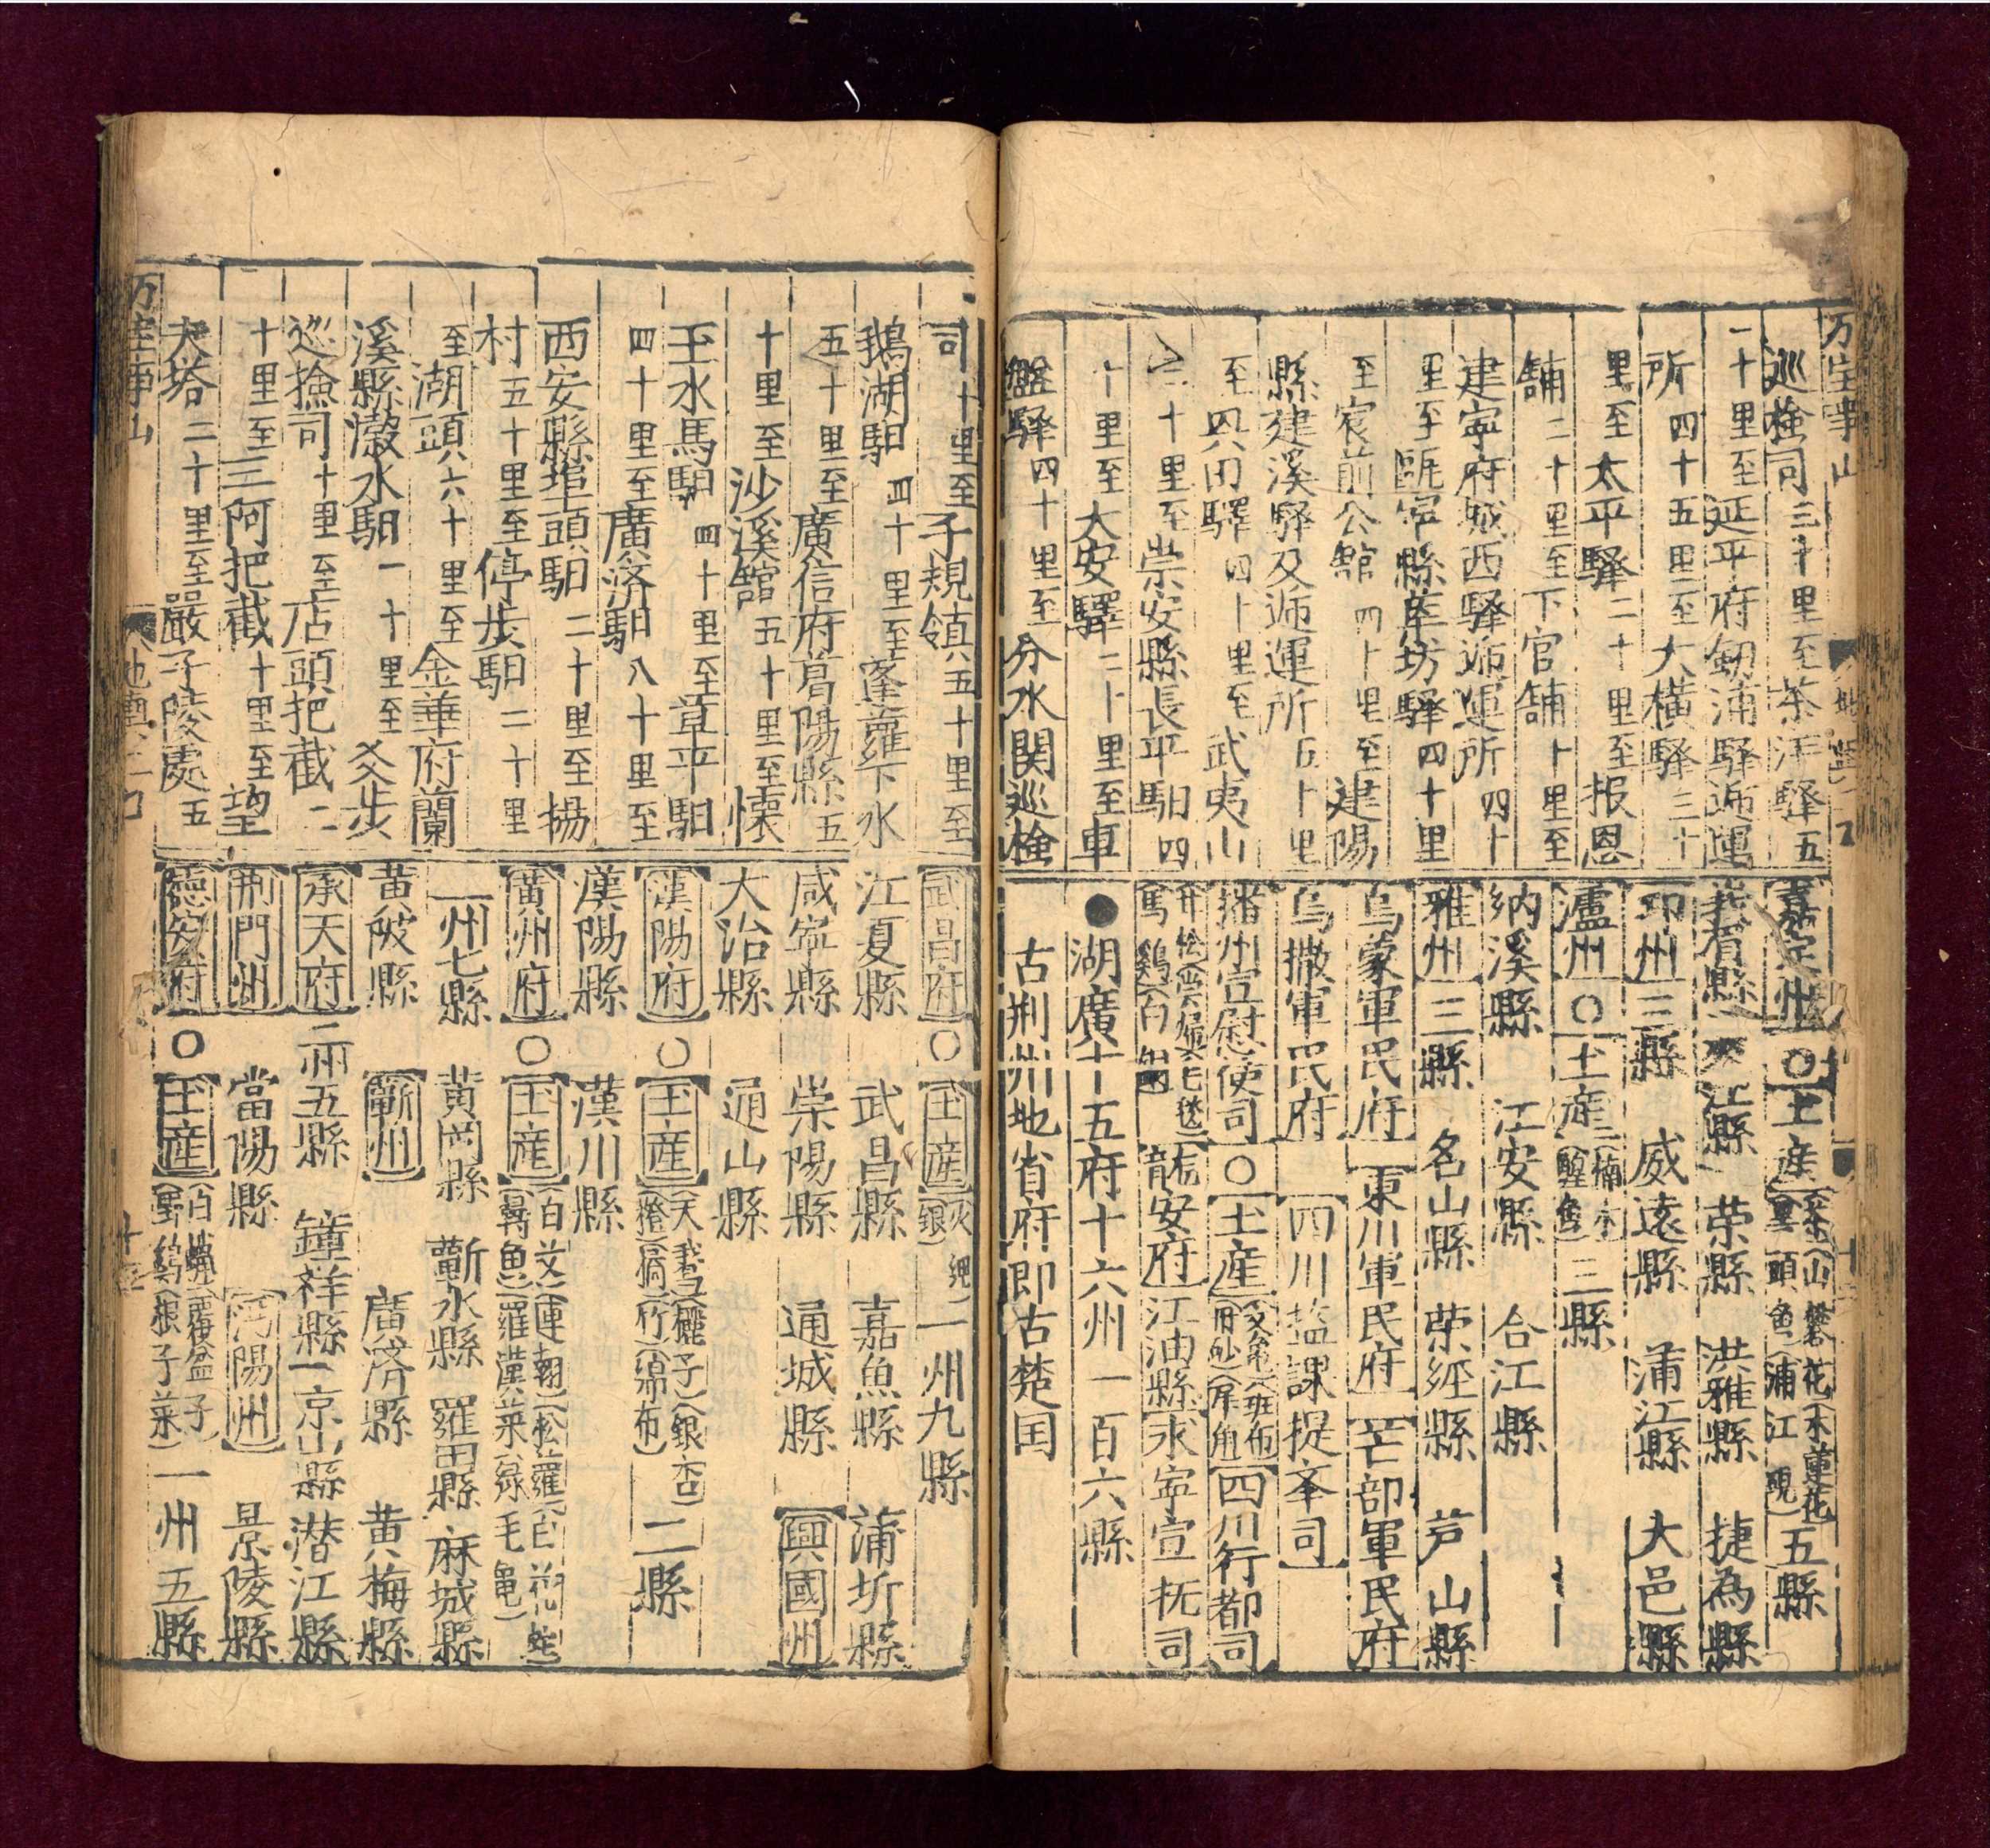 巡檢司三十里至茶洋驛五
一十里至延平府劒浦驛逓運
所四十五里至大橫驛三十
里至太平驛二十里至报恩
舗二十里至下官舗十里至
建寕府城西驛逓運所四十
里至甌寕縣葉坊驛四十里
至宸前公館四十里至建陽
縣建溪驛及逓運所五十里
至興田驛四十里至武夷山
二十里至崇安縣長平馹四
十里至大安驛二十里至車
盤驛四十里至分水関巡檢
嘉定州〇土産五縣
峩眉縣 夾江縣 荣縣 洪雅縣 捷為縣
邛州三縣 威遠縣 蒲江縣 大邑縣
瀘州〇土産楠木 三縣
納溪縣 江安縣 合江縣
雅州三縣 名山縣 荣經縣 芦山縣
烏蒙軍民府 東川軍民府 芒部軍民府
烏撒軍民府 四川塩課提夆司
播州宣慰使司〇土産 班布 犀角 四川行都司
龍安府江油縣 永寕宣抚司
●湖廣十五府十六州一百六縣
古荆州地省府即古楚国
司十里至子規鎮五十里至
鵝湖馹四十里至蓬蘿下水
五十里至廣信府葛陽縣五
十里至沙溪館五十里至懷
玉水馬馹四十里至草平馹
四十里至廣济馹八十里至
西安縣埠頭馹二十里至揚
村五十里至停步馹二十里
至湖頭六十里至金華府蘭
溪縣瀫水馹一十里至㸚步
巡撿司十里至店頭把截二
十里至三阿把截十里至望
夫塔二十里至嚴子陵處五
武昌府〇土産 銀 一州九縣
江夏縣 武昌縣 嘉魚縣 蒲圻縣
咸寕縣 崇陽縣 通城縣 興國州
大冶縣 通山縣
漢陽府〇土産 天鵝 銀杏 橙 橘 竹 綿布 二縣
漢陽縣 漢川縣
黄州府〇土産 白艾 連翹 松蘿 白花蛇 鱘魚 羅漢菜 綠毛龜
一州七縣 黄岡縣 蘄水縣 羅田縣 麻城縣
黄陂縣 蘄州 廣济縣 黄梅縣
承天府二州五縣 鐘祥縣 京山縣 潜江縣
荆門州 當陽縣 沔陽州 景陵縣
德安府〇土産 白蠟 覆盆子 野鷄 根子菜 一州五縣